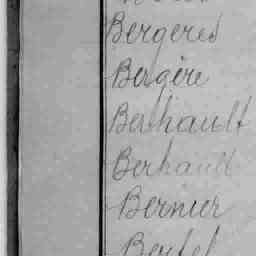 Bergeres
Bergère
Berhault
Berhault
Bernier
Bertel